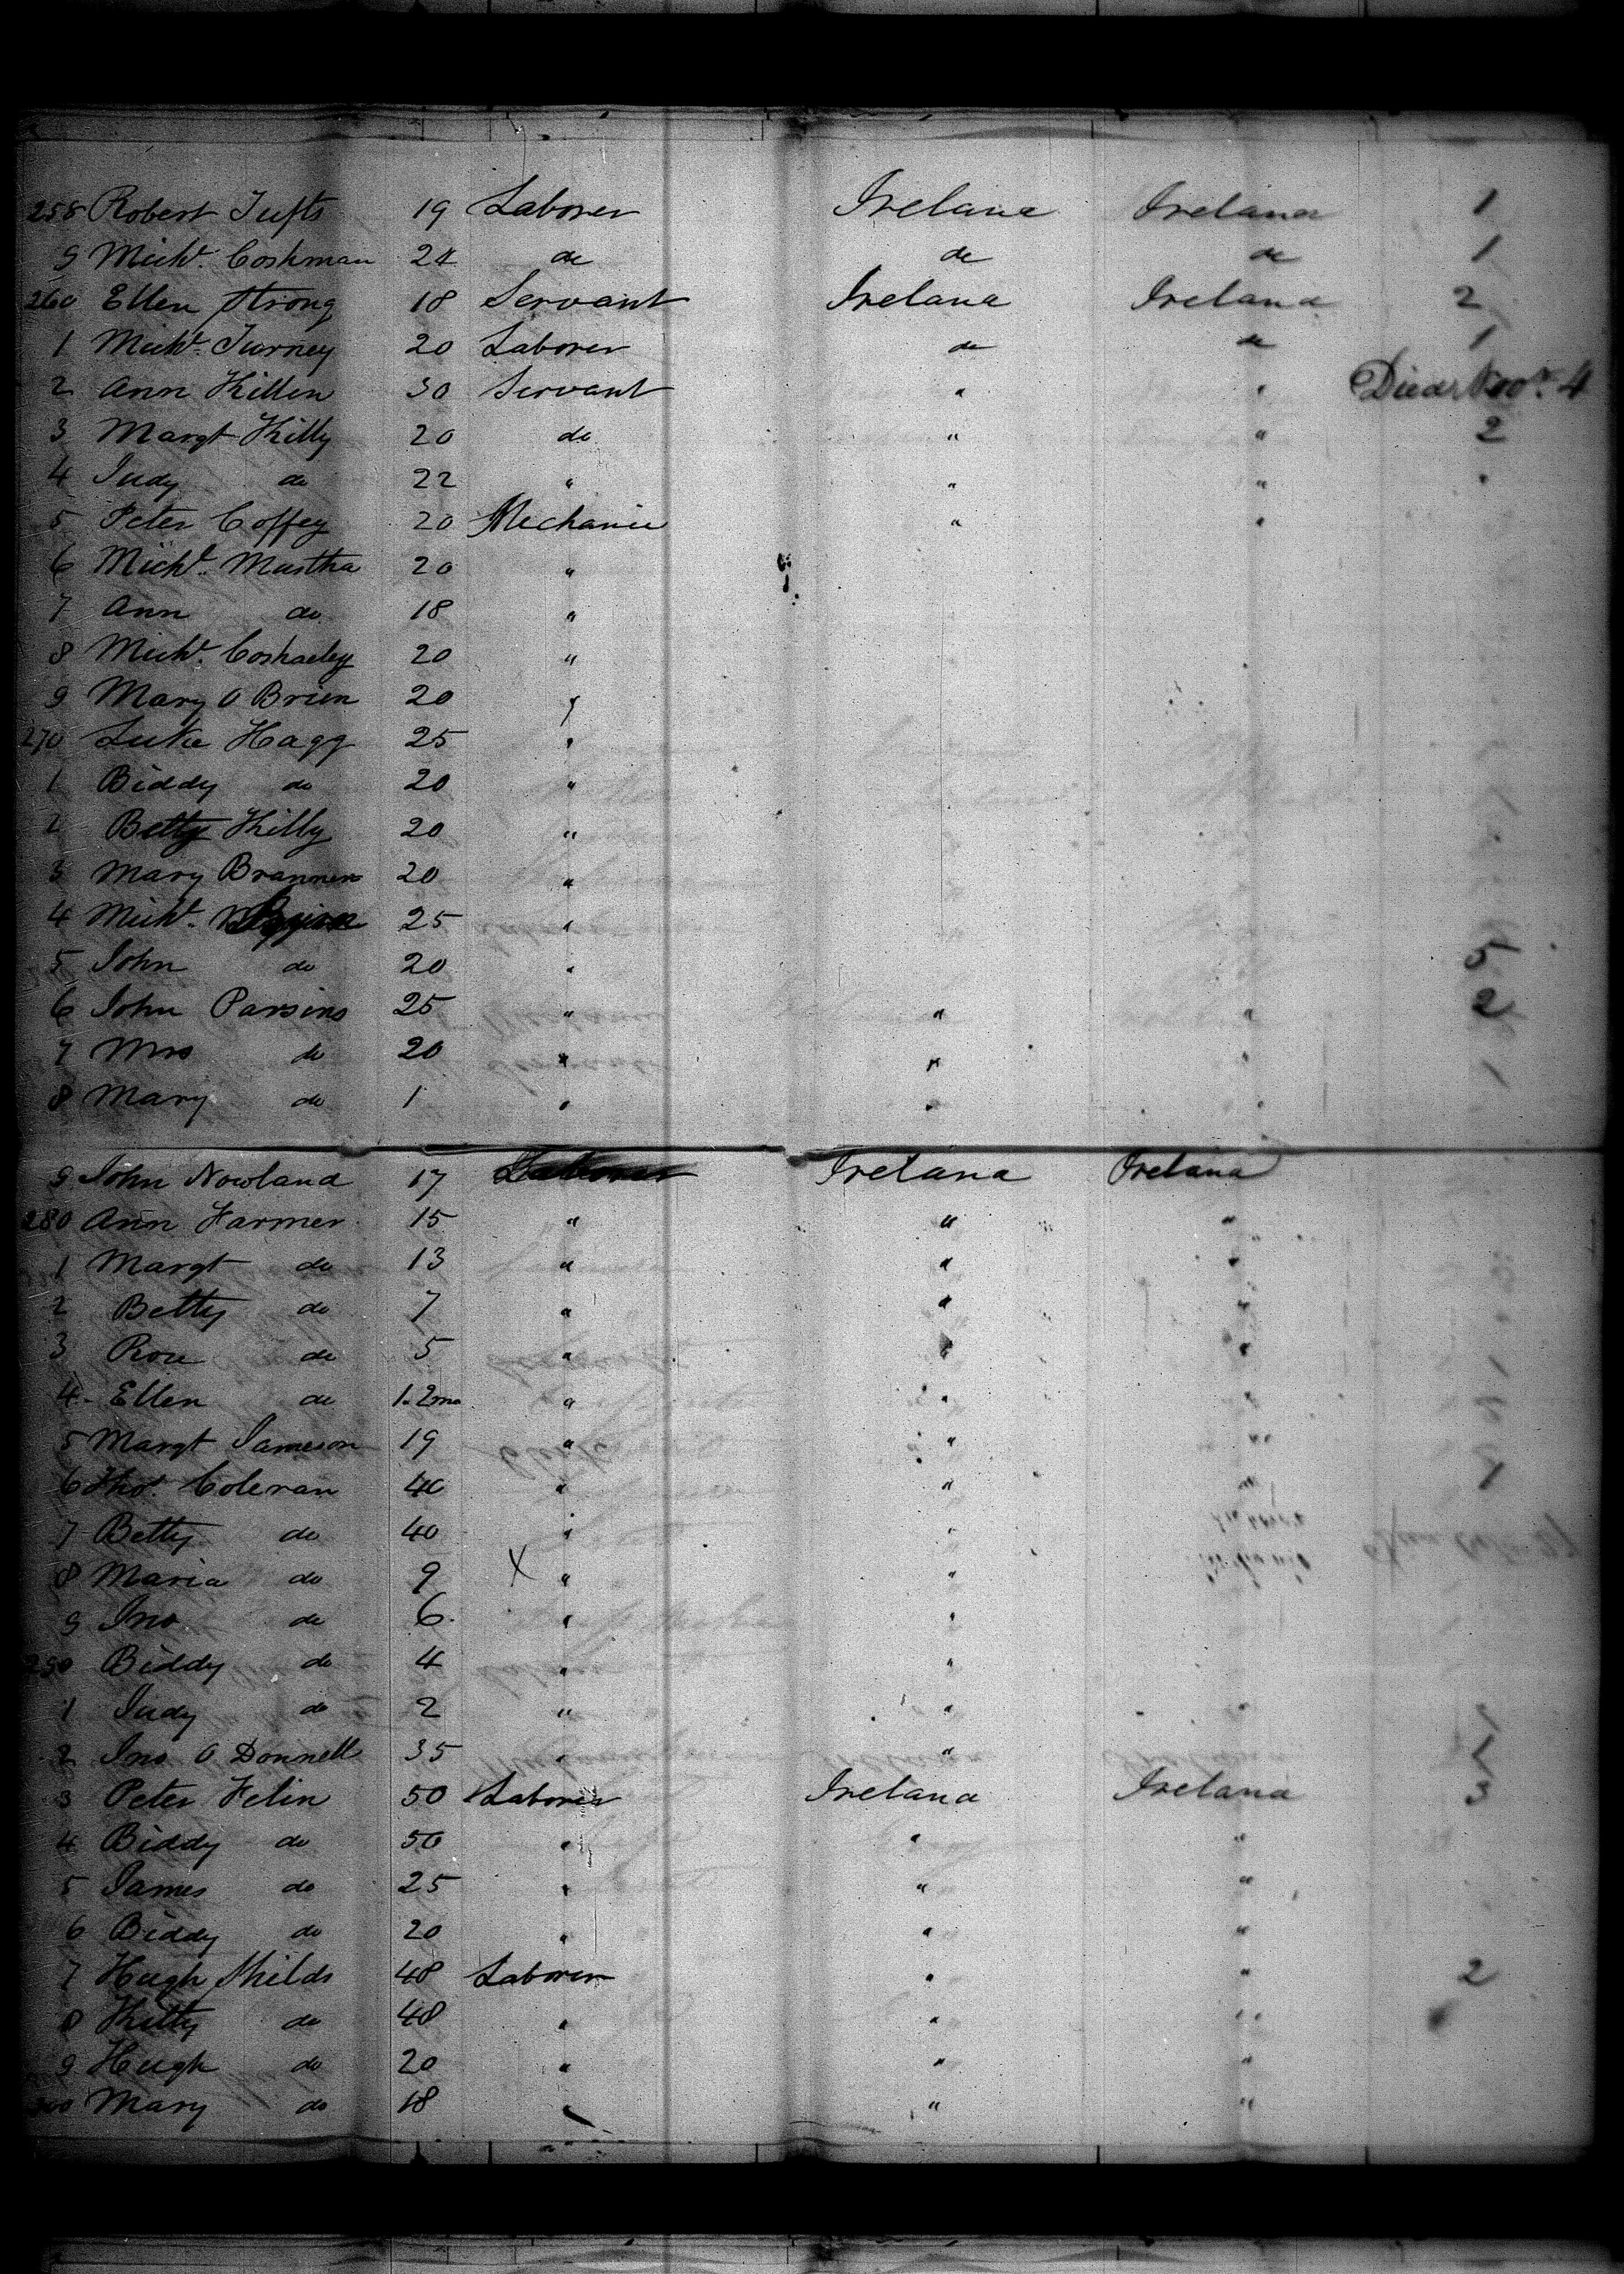 258 Robert Tufts 19 Laborer Ireland Ireland 1
9 Michl. Coshman 24 do do do 1
260 Ellen Strong 18 Servant Ireland Ireland 2
1 Michl. Turney 20 Laborer do do 1
2 Ann Killen 30 Servant " " Died Nov. 4
3 Margt Killy 20 do " " 2
4 Judy do 22 " " " "
5 Peter Coffey 20 Mechanic " "
6 Michl. Murtha 20 "
7 Ann do 18 "
8 Michl. 20 "
9 Mary O Brien 20 "
270 Luke Hagg 25 "
1 Biddy do 20 "
2 Betty Killy 20 "
3 Mary Brannen 20 "
4 Michl. 25 "
5 John do 20 " 5
6 John Parsons 25 " " " 2
7 Mrs do 20 " " "
8 Mary do 1 " " "
9 John Nowland 17 Laborer Ireland Ireland
280 Ann Farmer 15 " " "
1 Margt do 13 " " "
2 Betty do 7 " " "
3 Rose do 5 " " "
4 Ellen do 1.2mo " " "
5 Margt Jameson 19 " " "
6 Thos. Coleran 40 " " " 1
7 Betty do 40 " "
8 Maria do 9 X " "
9 Jno do 6 " "
290 Biddy do 4 " "
1 Judy do 2 " " "
2 Jno O Donnell 35 " " 1
3 Peter Felin 50 Laborer Ireland Ireland 3
4 Biddy do 50 " " "
5 James do 25 " " "
6 Biddy do 20 " " "
7 Hugh Shields 48 Laborer " " 2
8 Kitty do 48 " " "
9 Hugh do 20 " " "
300 Mary do 18 " " "